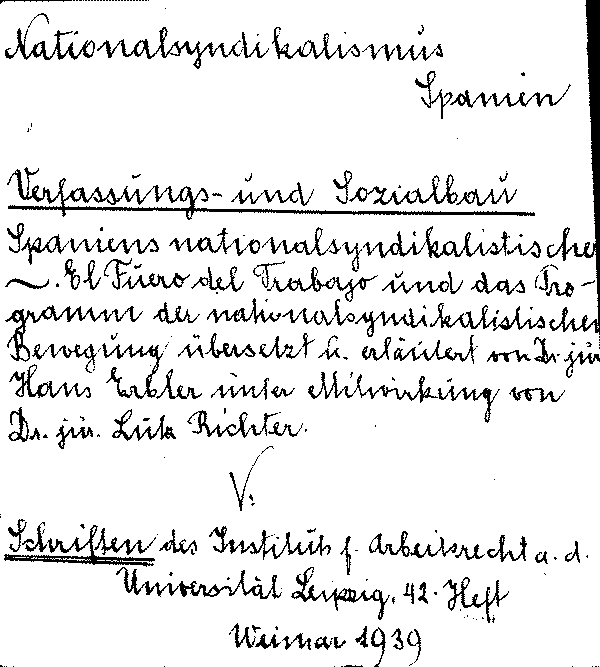 Nationalsyndikalismus
Spanien
Verfassungs- und Sozialbau
Spaniens nationalsyndikalistischer
~. El Fuero del Trabajo und das Pro-
gramm der nationalsyndikalistischen
Bewegung übersetzt u. erläutert von Dr. jur.
Hans Erbler unter Mitwirkung von
Dr. jur. Lutz Richter.
V:
Schriften des Instituts f. Arbeitsrecht a. d.
Universität Leipzig. 42. Heft
Weimar 1939